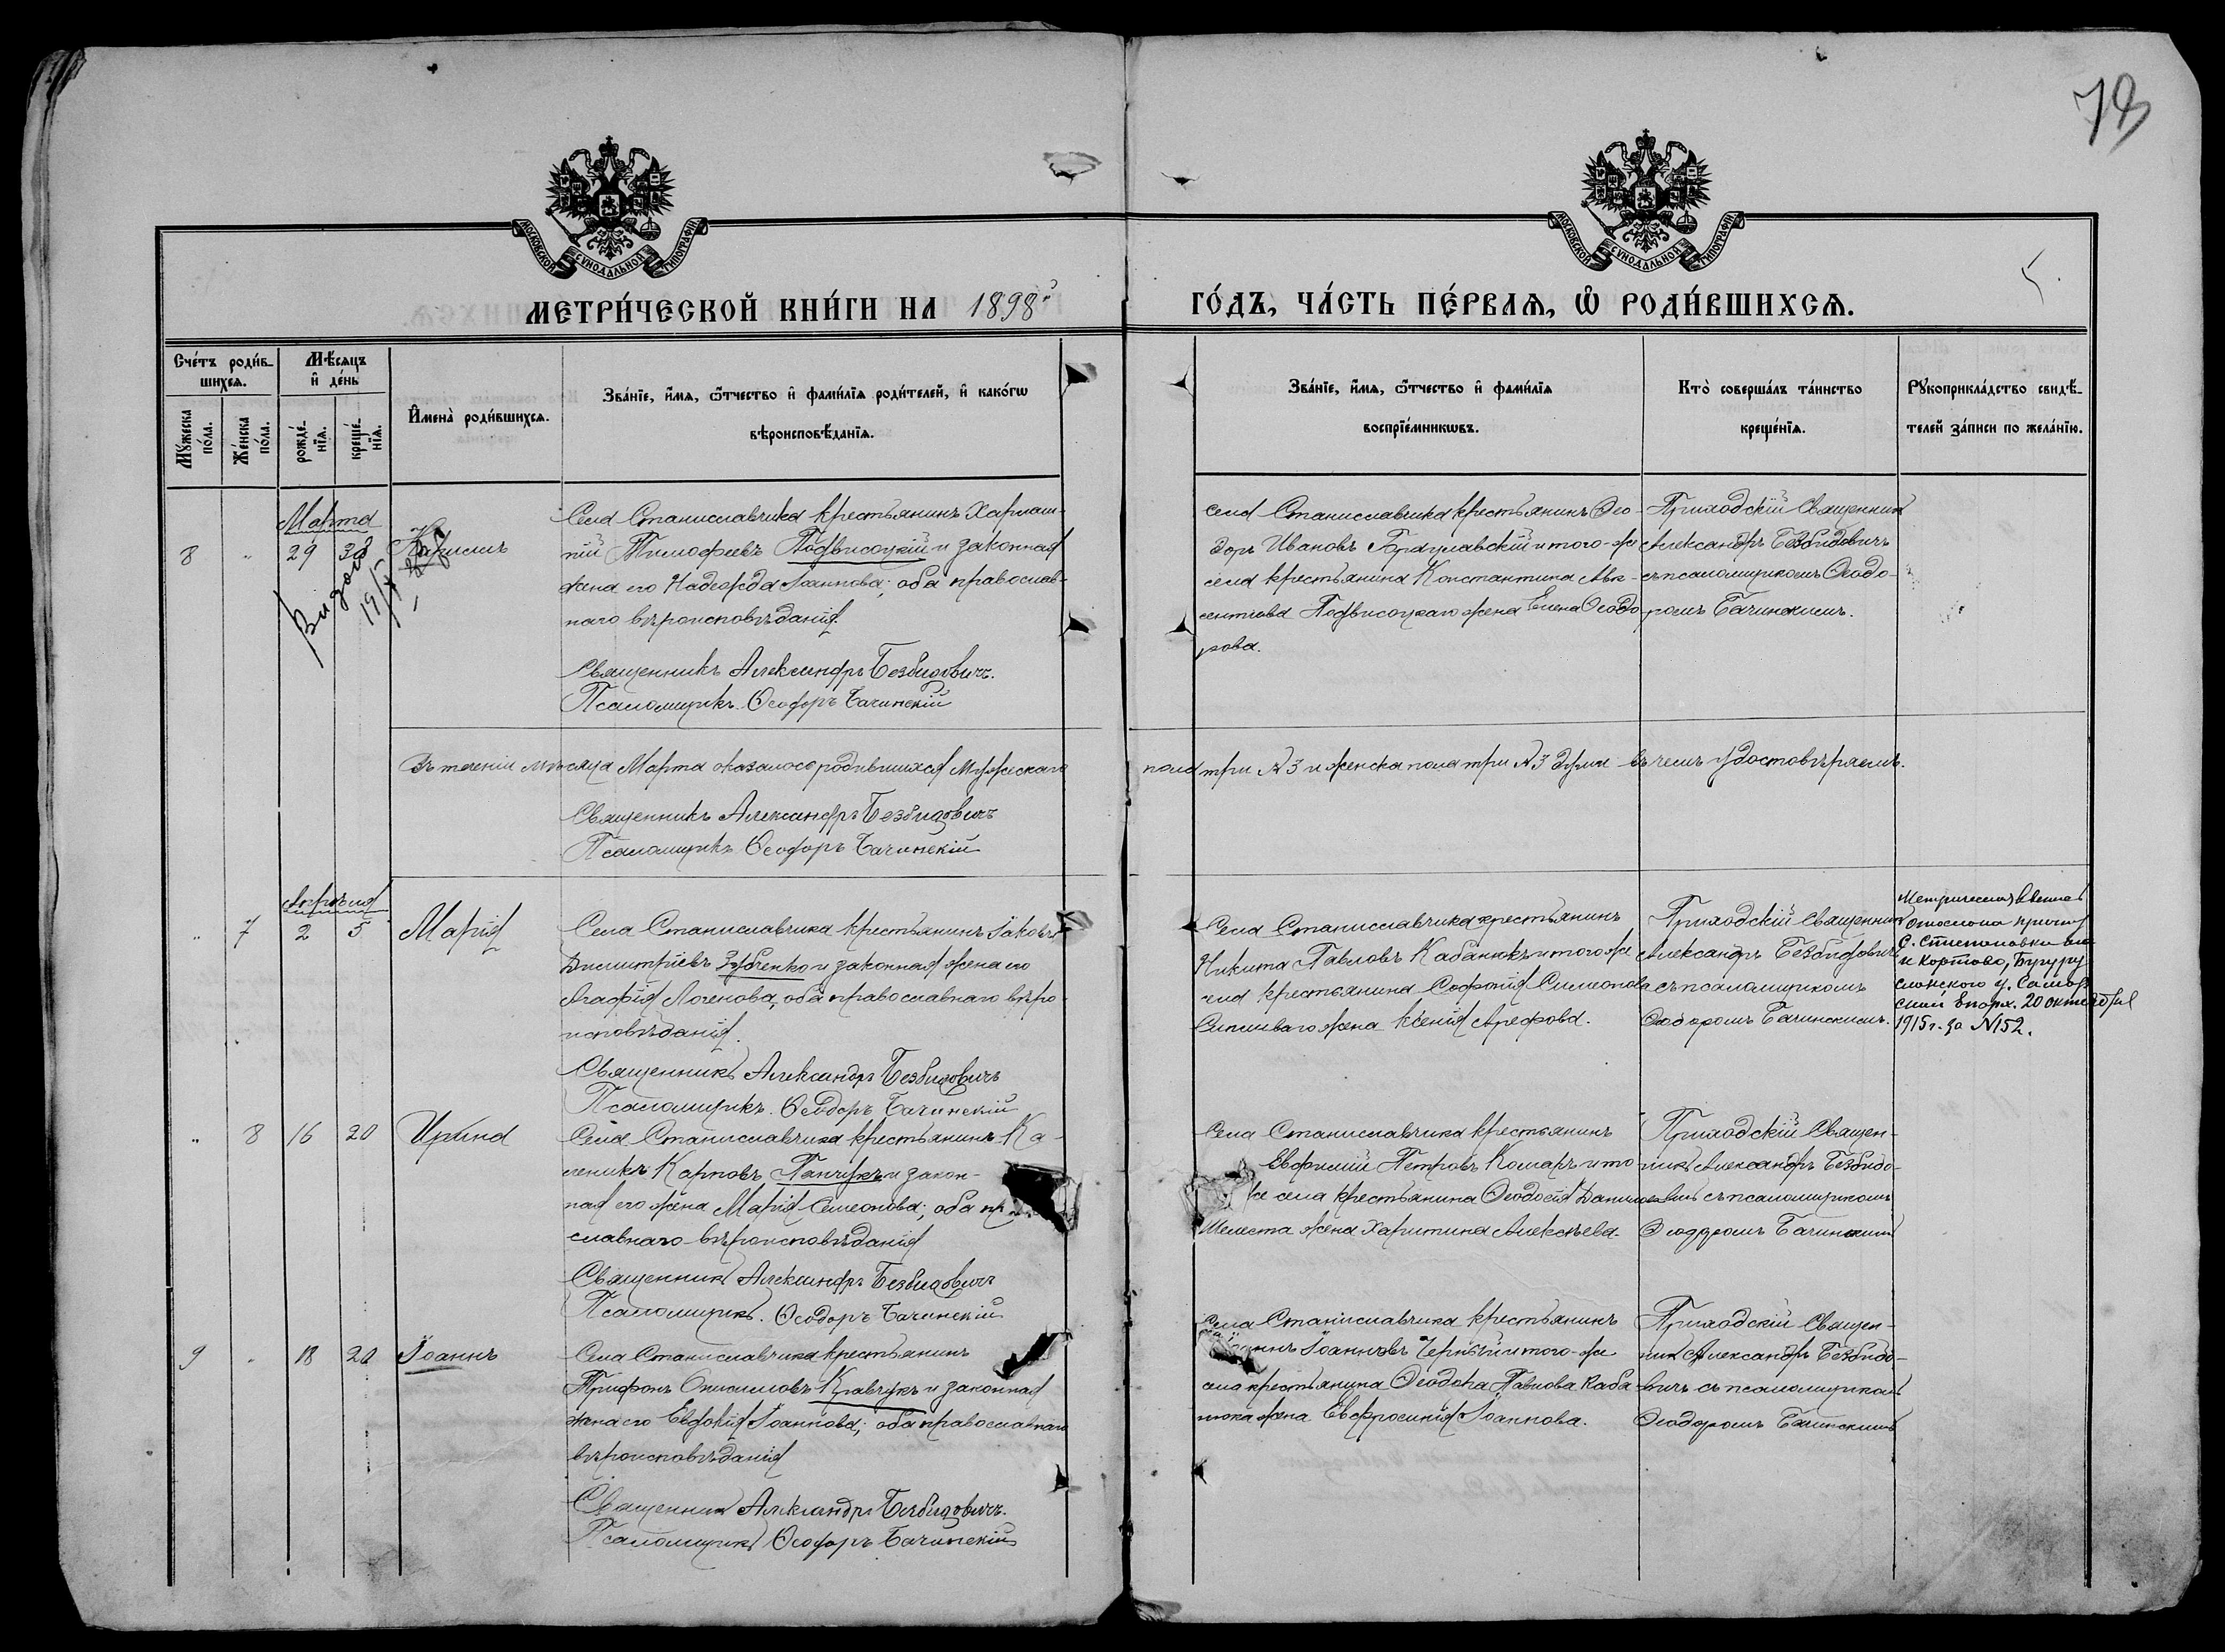 78
МОСКОВСКОЙ СУНОДАЛЬНОЙ ТИПОГРАФІИ
МОСКОВСКОЙ СУНОДАЛЬНОЙ ТИПОГРАФІИ
5.
МЕТРИ́ЧЕСКОЙ КНИ́ГИ НА 1898й ГО́ДЪ, ЧА́СТЬ ПЕ́РВАЯ, Ѡ҆ РОДИ́ВШИХСЯ.
Сче́тъ роди́в-
шихся.
Мꙋ́жеска по́ла.
Же́нска по́ла.
Мѣ́сяцъ
и҆ де́нь
рожде́-
нїя.
креще́-
нїя.
И҆мена̀ роди́вшихся.
Зва́нїе, и҆́мя, ѻ҆́тчество и҆ фами́лїя роди́телей, и҆ како́гѡ
вѣроисповѣ́данїя.
Зва́нїе, и҆́мя, ѻ҆́тчество и҆ фами́лїя
воспрїе́мникѡвъ.
Кто̀ соверша́лъ та́инство
креще́нїя.
Рꙋкоприкла́дство свидѣ́-
телей за́писи по жела́нїю.
Марта
8 " 29 30
19/
Села Станиславчика крестьянинъ Харлам-
пій Тимофеевъ Подвисоцкій и законная
жена его Надежда Іоаннова; оба православ-
наго вѣроисповѣданія.
Священникъ Александръ Безбидовичъ.
Псаломщикъ Ѳеодоръ Бачинскій
села Станиславчика крестьянинъ Ѳео-
доръ Ивановъ и того-же
села крестьянина Константина Авк-
сентіева Подвисоцкаго жена Елена Ѳеодо-
рова.
Приходскій Священник
Александръ Безбидовичъ
съ псаломщикомъ Ѳеодо-
ромъ Бачинскимъ.
Въ теченіи мѣсяца Марта оказалось родившихся Мужескаго пола три № 3 и женска пола три № 3 души въ чемъ удостовѣряемъ.
Священникъ Александръ Безбидовичъ
Псаломщикъ Ѳеодоръ Бачинскій
Апрѣля
" 7 2 5 Марія
Села Станиславчика крестьянинъ Іаковъ
Димитріевъ Зубченко и законная жена его
Агафія Логгинова, оба православнаго вѣро-
исповѣданія.
Священникъ Александръ Безбидовичъ
Псаломщикъ. Ѳеодоръ Бачинскій
Села Станиславчика крестьянинъ
Никита Павловъ Кабанюкъ и того же
села крестьянина Софонія Симеонова
жена Ксенія Арефова.
Приходскій Священник
Александръ Безбидовичъ
съ псаломщикомъ
Ѳеодоромъ Бачинскимъ.
с. Степановки
Бугуру
сланского у. Самар
ской Епарх. 20 октября
1915 г. за №152.
" 8 16 20 Ирина
Села Станиславчика крестьянинъ Ка-
леникъ Карповъ Панчукъ и закон-
ная его жена Марія Симеонова; оба пр
славнаго вѣроисповѣданія
Священникъ Александръ Безбидовичъ
Псаломщикъ. Ѳеодоръ Бачинскій
Села Станиславчика крестьянинъ
Евфимій Петровъ Комаръ и то
же села крестьянина Ѳеодосія Данилова
Шелеста жена Харитина Алексѣева.
Приходскій Священ-
никъ Александръ Безбидо-
вичъ съ псаломщикомъ
Ѳеодоромъ Бачинским
9 " 18 20 Іоаннъ
Села Станиславчика крестьянинъ
Трифонъ Онисимовъ Кравчукъ и законная
жена его Евдокія Іоаннова; оба православнаго
вѣроисповѣданія
Священник Александръ Безбидовичъ.
Псаломщикъ Ѳеодоръ Бачинскій
Села Станиславчика крестьянинъ
Іоанновъ Чернѣй и того-же
села крестьянина Ѳеодора Павлова Каба-
нюка жена Евфросинія Іоаннова.
Приходскій Священ-
никъ Александръ Безбидо-
вичъ съ псаломщикомъ
Ѳеодоромъ Бачинскимъ